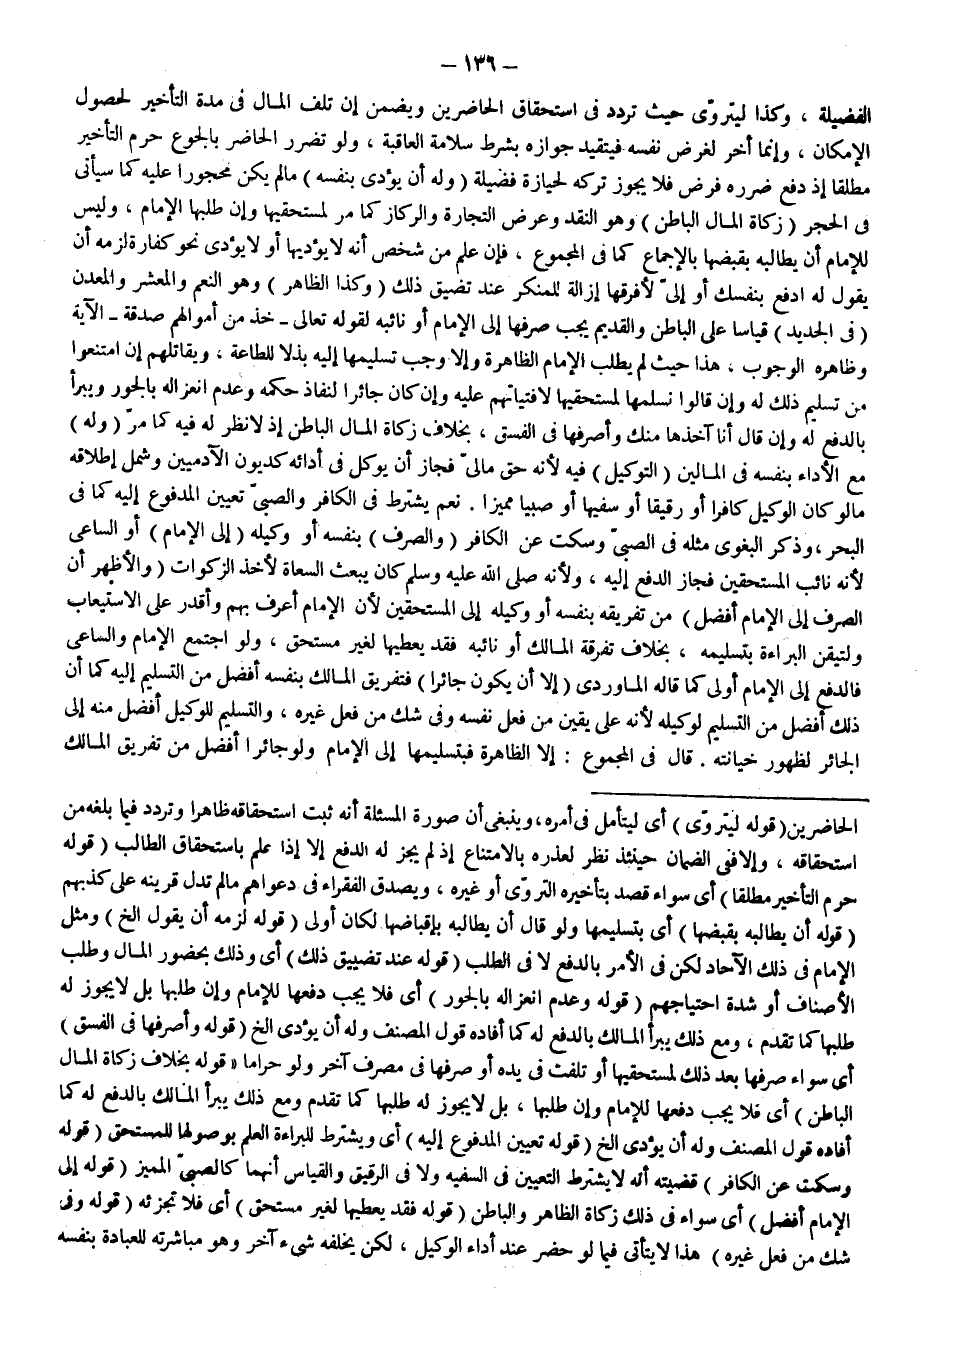 — ١٣٦ —
الفضيلة ، وكذا ليتروّى حيث تردد فى استحقاق الحاضرين ويضمن إن تلف المال فى مدة التأخير لحصول
الإمكان ، وإنما أخر لغرض نفسه فيتقيد جوازه بشرط سلامة العاقبة ، ولو تضرر الحاضر بالجوع حرم التأخير
مطلقا إذ دفع ضرره فرض فلا يجوز تركه لحيازة فضيلة ( وله أن يؤدى بنفسه ) مالم يكن محجورا عليه كما سيأتى
فى الحجر ( زكاة المال الباطن ) وهو النقد وعرض التجارة والركاز كما مر لمستحقيها وإن طلبها الإمام ، وليس
للإمام أن يطالبه بقبضها بالإجماع كما فى المجموع ، فإن علم من شخص أنه لايؤديها أو لايؤدى نحو كفارة لزمه أن
يقول له ادفع بنفسك أو إلىّ لأفرقها إزالة للمنكر عند تضيق ذلك ( وكذا الظاهر ) وهو النعم والمعشر والمعدن
( فى الجديد ) قياسا على الباطن والقديم يجب صرفها إلى الإمام أو نائبه لقوله تعالى ـ خذ من أموالهم صدقة ـ الآية
وظاهره الوجوب ، هذا حيث لم يطلب الإمام الظاهرة وإلا وجب تسليمها إليه بذلا للطاعة ، ويقاتلهم إن امتنعوا
من تسليم ذلك له وإن قالوا نسلمها لمستحقيها لافتياتهم عليه وإن كان جائرا لنفاذ حكمه وعدم انعزاله بالجور ويبرأ
بالدفع له وإن قال أنا آخذها منك وأصرفها فى الفسق ، بخلاف زكاة المال الباطن إذ لانظر له فيه كما مرّ ( وله )
مع الأداء بنفسه فى المالين ( التوكيل ) فيه لأنه حق مالىّ فجاز أن يوكل فى أدائه كديون الآدميين وشمل إطلاقه
مالو كان الوكيل كافرا أو رقيقا أو سفيها أو صبيا مميزا . نعم يشترط فى الكافر والصبىّ تعيين المدفوع إليه كما فى
البحر ، وذكر البغوى مثله فى الصبىّ وسكت عن الكافر ( والصرف ) بنفسه أو وكيله ( إلى الإمام ) أو الساعى
لأنه نائب المستحقين فجاز الدفع إليه ، ولأنه صلى الله عليه وسلم كان يبعث السعاة لأخذ الزكوات ( والأظهر أن
الصرف إلى الإمام أفضل ) من تفريقه بنفسه أو وكيله إلى المستحقين لأن الإمام أعرف بهم وأقدر على الاستيعاب
ولتيقن البراءة بتسليمه ، بخلاف تفرقة المالك أو نائبه فقد يعطيها لغير مستحق ، ولو اجتمع الإمام والساعى
فالدفع إلى الإمام أولى كما قاله الماوردى ( إلا أن يكون جائرا ) فتفريق المالك بنفسه أفضل من التسليم إليه كما أن
ذلك أفضل من التسليم لوكيله لأنه على يقين من فعل نفسه وفى شك من فعل غيره ، والتسليم للوكيل أفضل منه إلى
الجائر لظهور خيانته . قال فى المجموع : إلا الظاهرة فبتسليمها إلى الإمام ولو جائرا أفضل من تفريق المالك
الحاضرين (قوله ليتروّى ) أى ليتأمل فى أمره، وينبغى أن صورة المسئلة أنه ثبت استحقاقه ظاهرا وتردد فيما بلغه من
استحقاقه ، وإلا ففى الضمان حينئذ نظر لعذره بالامتناع إذ لم يجز له الدفع إلا إذا علم باستحقاق الطالب ( قوله
حرم التأخير مطلقا ) أى سواء قصد بتأخيره التروّى أو غيره ، ويصدق الفقراء فى دعواهم مالم تدل قرينه على كذبهم
( قوله أن يطالبه بقبضها ) أى بتسليمها ولو قال أن يطالبه بإقباضها لكان أولى ( قوله لزمه أن يقول الخ ) ومثل
الإمام فى ذلك الآحاد لكن فى الأمر بالدفع لا فى الطلب ( قوله عند تضييق ذلك ) أى وذلك بحضور المال وطلب
الأصناف أو شدة احتياجهم ( قوله وعدم انعزاله بالجور ) أى فلا يجب دفعها للإمام وإن طلبها بل لايجوز له
طلبها كما تقدم ، ومع ذلك يبرأ المالك بالدفع له كما أفاده قول المصنف وله أن يؤدى الخ ( قوله وأصرفها فى الفسق )
أى سواء صرفها بعد ذلك لمستحقيها أو تلفت فى يده أو صرفها فى مصرف آخر ولو حراما « قوله بخلاف زكاة المال
الباطن ) أى فلا يجب دفعها للإمام وإن طلبها ، بل لايجوز له طلبها كما تقدم ومع ذلك يبرأ المالك بالدفع له كما
أفاده قول المصنف وله أن يؤدى الخ ( قوله تعيين المدفوع إليه ) أى ويشترط للبراءة العلم بوصولها للمستحق ( قوله
وسكت عن الكافر ) قضيته أنه لايشترط التعيين فى السفيه ولا فى الرقيق والقياس أنهما كالصبىّ المميز ( قوله إلى
الإمام أفضل ) أى سواء فى ذلك زكاة الظاهر والباطن ( قوله فقد يعطيها لغير مستحق ) أى فلا تجزئه ( قوله وفى
شك من فعل غيره ) هذا لايتأتى فيما لو حضر عند أداء الوكيل ، لكن يخلفه شىء آخر وهو مباشرته للعبادة بنفسه